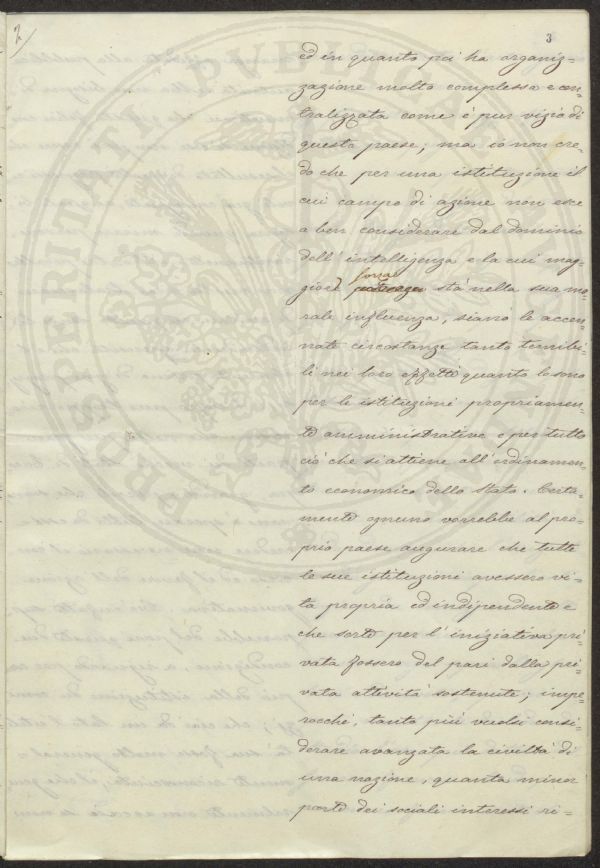 2/
3
ed in quanto poi ha organiz-
zazione molto complessa e cen-
tralizzata come è pur vizio di
questo paese; ma io non cre-
do che per una istituzione il
cui campo di azione non esce
a ben considerare dal dominio
dell'intelligenza e la cui mag-
forza
giore potenza sta nella sua mo-
rale influenza, siano le accen-
nate circostanze tanto terribi-
li nei loro effetti quanto lo sono
per le istituzioni propriamen-
te amministrative e per tutto
ciò che si attiene all'ordinamen-
to economico dello Stato. Certa-
mente ognuno vorrebbe al pro-
prio paese augurare che tutte
le sue istituzioni avessero vi-
ta propria ed indipendente e
che sorte per l'iniziativa pri-
vata fossero del pari dalla pri-
vata attività sostenute; impe-
rocchè, tanto più vuolsi consi-
derare avanzata la civiltà di
una nazione, quanta minor
parte dei sociali interessi ri-
PROSPERITATI PUBLICAE